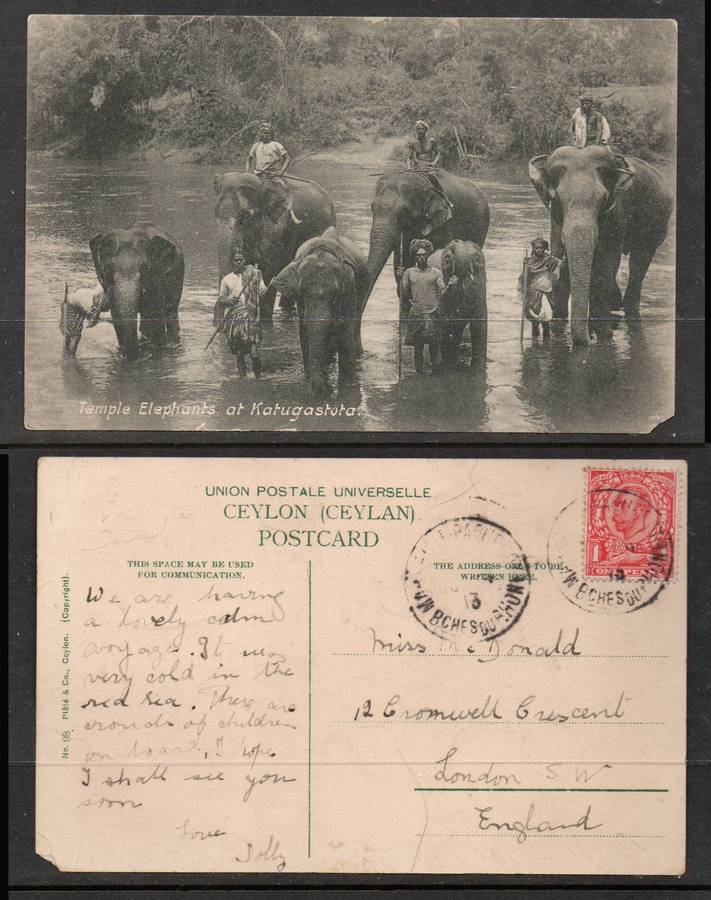 Temple Elephants at Katugastota.
UNION POSTALE UNIVERSELLE
CEYLON (CEYLAN)
POSTCARD
THIS SPACE MAY BE USED
FOR COMMUNICATION.
THE ADDRESS ONLY TO BE
WRITTEN HERE.
No. Plâté & Co., Ceylon. (Copyright).
We are having
a lovely calm
voyage. It was
very cold in the
red sea. There are
crowds of children
on board, I hope
I shall see you
soon
Love
Dolly
13
BCHES DU RHONE
1
ONE PENNY
BCHES DU RHONE
Miss McDonald
12 Cromwell Crescent
London S W
England